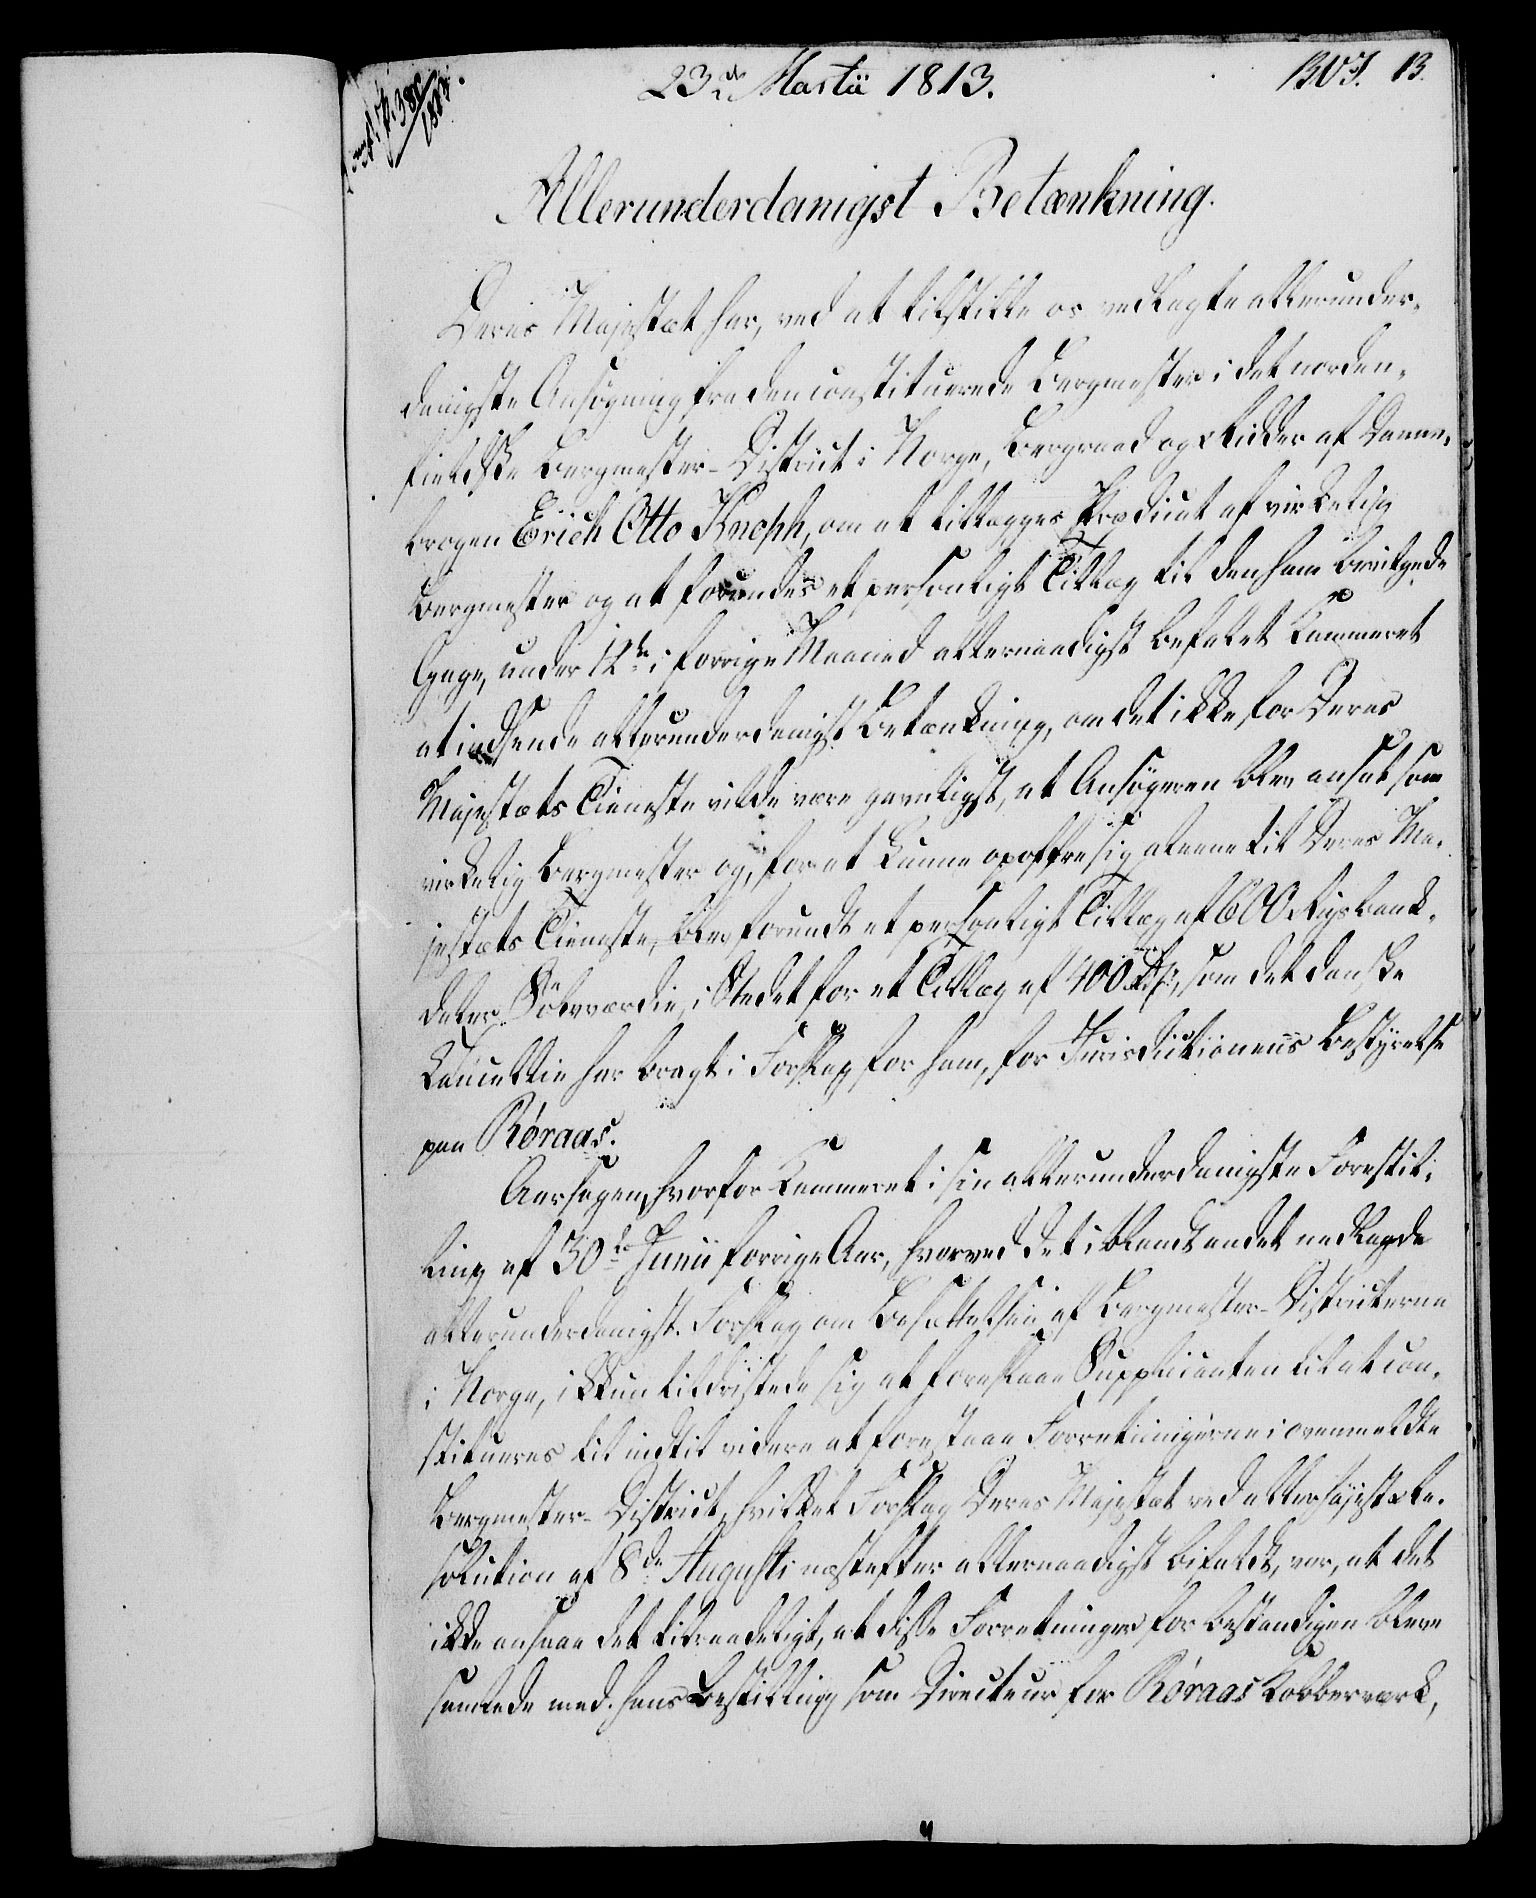 23de Martii 1813.
Allerunderdanigst Betænkning.
Deres Majestæt har, ved at tilstille os vedlagte allerunder-
danigste Ansøgning fra den constituerede Bergmester i det norden-
fieldske Bergmester-District i Norge, Bergraad og Ridder af Danne-
brogen Erich Otto Knoph, om at tillægges Prædicat af virkelig
Bergmester og at forundes et personligt Tillæg til den ham bevilgede
Gage, under 12te i forrige Maaned allernaadigst befalet Kammeret
at indsende allerunderdanigst Betænkning, om det ikke for Deres
Majestæts Tieneste vilde være gavnligst, at Ansøgeren blev ansat som
virkelig Bergmester og, for at kunne opoffre sig aleene til Deres Ma-
jestæts Tieneste, blev forundt et personligt Tillæg af 600 Rigsbank-
daler Sølvværdie, i Stedet for et Tillæg af 400 Rdr, som det danske
Cancellie har bragt i Forslag for ham, for Jurisdictionens Bestyrelse
paa Røraas.
Aarsagen, hvorfor Kammeret i sin allerunderdanigste Forestil-
ling af 30te Junii forrige Aar, hvorved det iblandt andet nedlagde
allerunderdanigst Forslag om Besættelsen af Bergmester-Districterne
i Norge, ikkun tildristede sig at foreslaae Supplicanten til at con-
stitueres til indtil videre at forestaae Forretningerne i ovenmeldte
Bergmester-District, hvilket Forslag Deres Majestæt ved allerhøjeste Re-
solution af 8de Augusti næstefter allernaadigst bifaldt, var, at det
ikke ansaae det tilraadeligt, at disse Forretninger for bestandigen bleve
samlede med hans Bestilling som Directeur for Røraas Kobberværk,